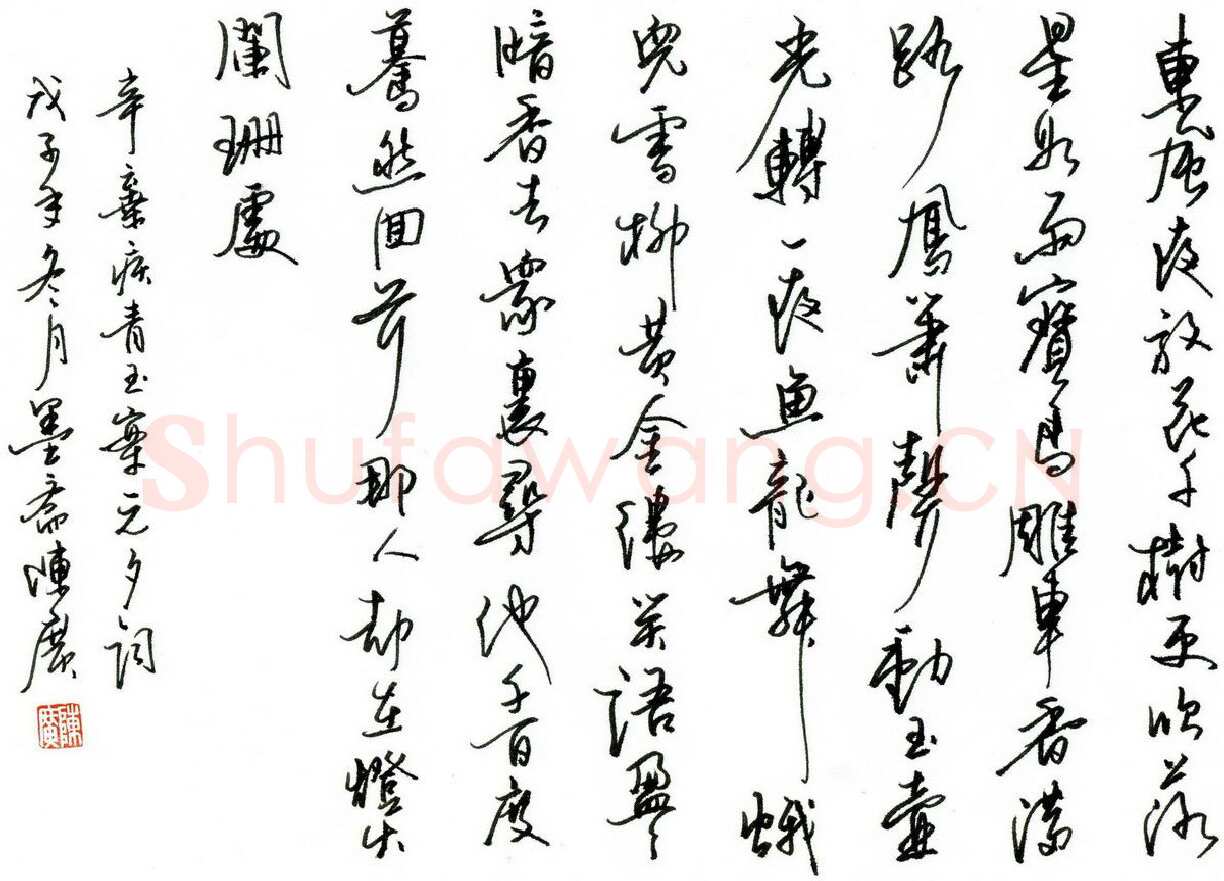 東風夜放花千樹更吹落
星如雨寶馬雕車香滿
路鳳簫聲動玉壺
光轉一夜魚龍舞蛾
兒雪柳黃金縷笑語盈々
暗香去眾裏尋他千百度
驀然回首那人却在燈火
闌珊處
辛棄疾青玉案元夕詞
戊子年冬月墨齋陳廣
陳廣
Shufawang.CN